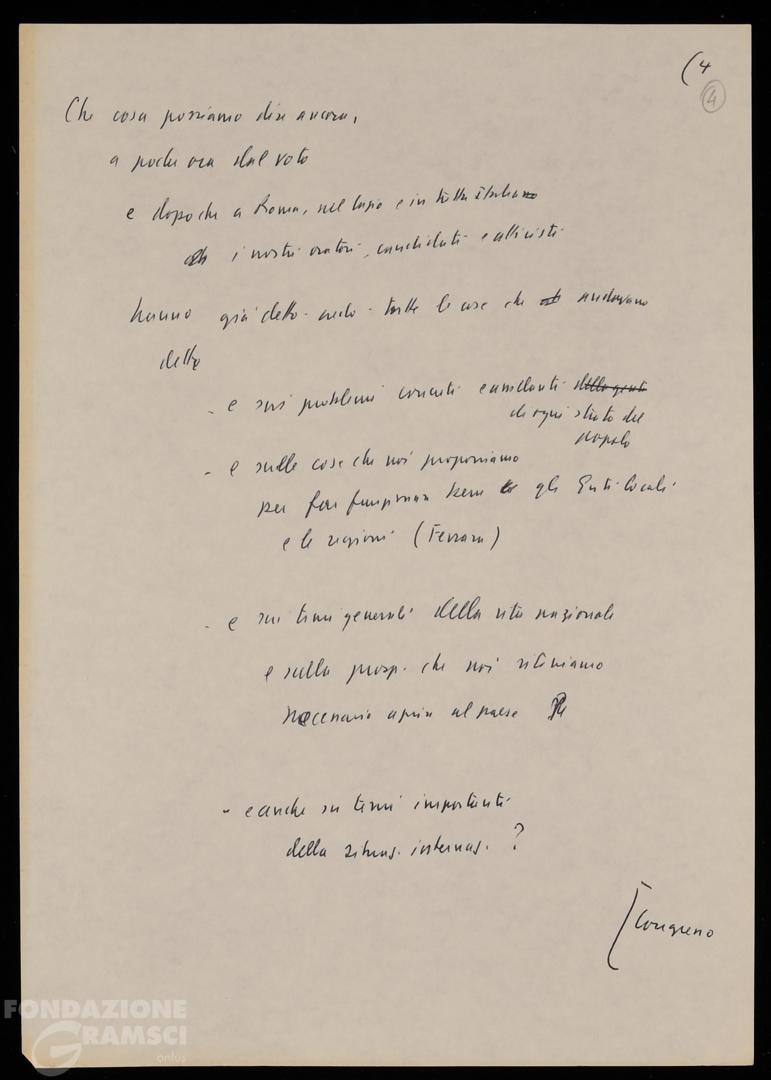 (4
4
Che cosa possiamo dire ancora,
a poche ore dal voto
e dopo che a Roma, nel Lazio e in tutta Italia
i nostri oratori, candidati e attivisti
hanno già detto - credo - tutte le cose che andavano
dette
- e sui problemi concreti e assillanti della gente
di ogni strato del
popolo
- e sulle cose che noi proponiamo
per far funzionare bene gli Enti locali
e le regioni (Ferrara)
- e sui temi generali della vita nazionale
e sulla prosp. che noi riteniamo
necessario aprire al paese
- e anche su temi importanti
della situaz. internaz. ?
[Congresso
FONDAZIONE
GRAMSCI
onlus